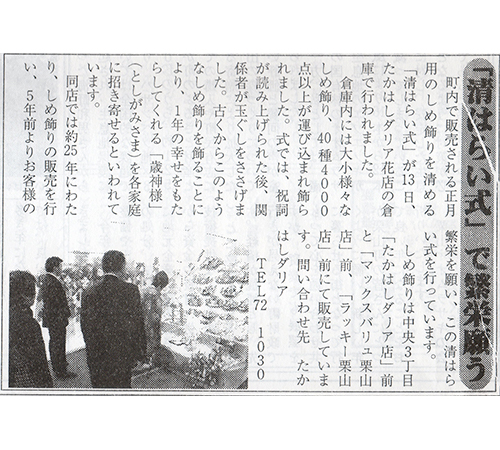 「清はらい式」で繁栄願う
町内で販売される正月
用のしめ飾りを清める
「清はらい式」が13日、
たかはしダリア花店の倉
庫で行われました。
倉庫内には大小様々な
しめ飾り、40種4000
点以上が運び込まれ飾ら
れました。式では、祝詞
が読み上げられた後、関
係者が玉ぐしをささげま
した。古くからこのよう
なしめ飾りを飾ることに
より、1年の幸せをもた
らしてくれる「歳神様」
(としがみさま)を各家庭
に招き寄せるといわれて
います。
同店では約25年にわた
り、しめ飾りの販売を行
い、5年前よりお客様の
繁栄を願い、この清はら
い式を行っています。
しめ飾りは中央3丁目
「たかはしダリア店」前
と「マックスバリュ栗山
店」前　「ラッキー栗山
店」前にて販売していま
す。問い合わせ先　たか
はしダリア
TEL72　1030